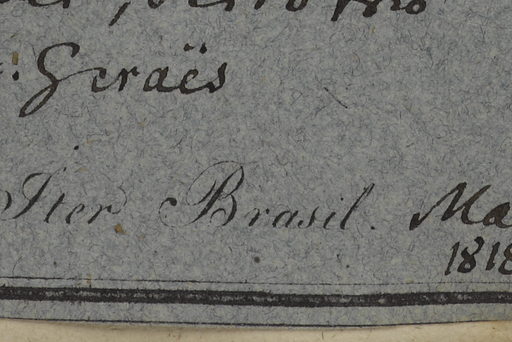 Geraës
Iter Brasil. Ma
1818